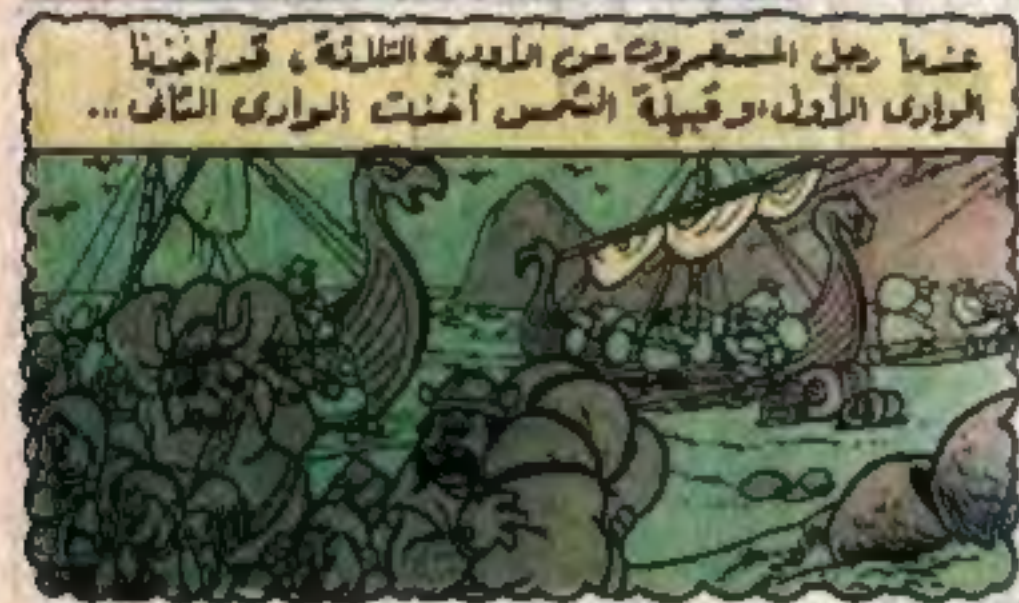 عندما رحل المستعمرون عن الأودية الثلاثة ، قد أخذنا
الوادى الأول، و قبيلة الشمس أخذت الوادى الثانى ...